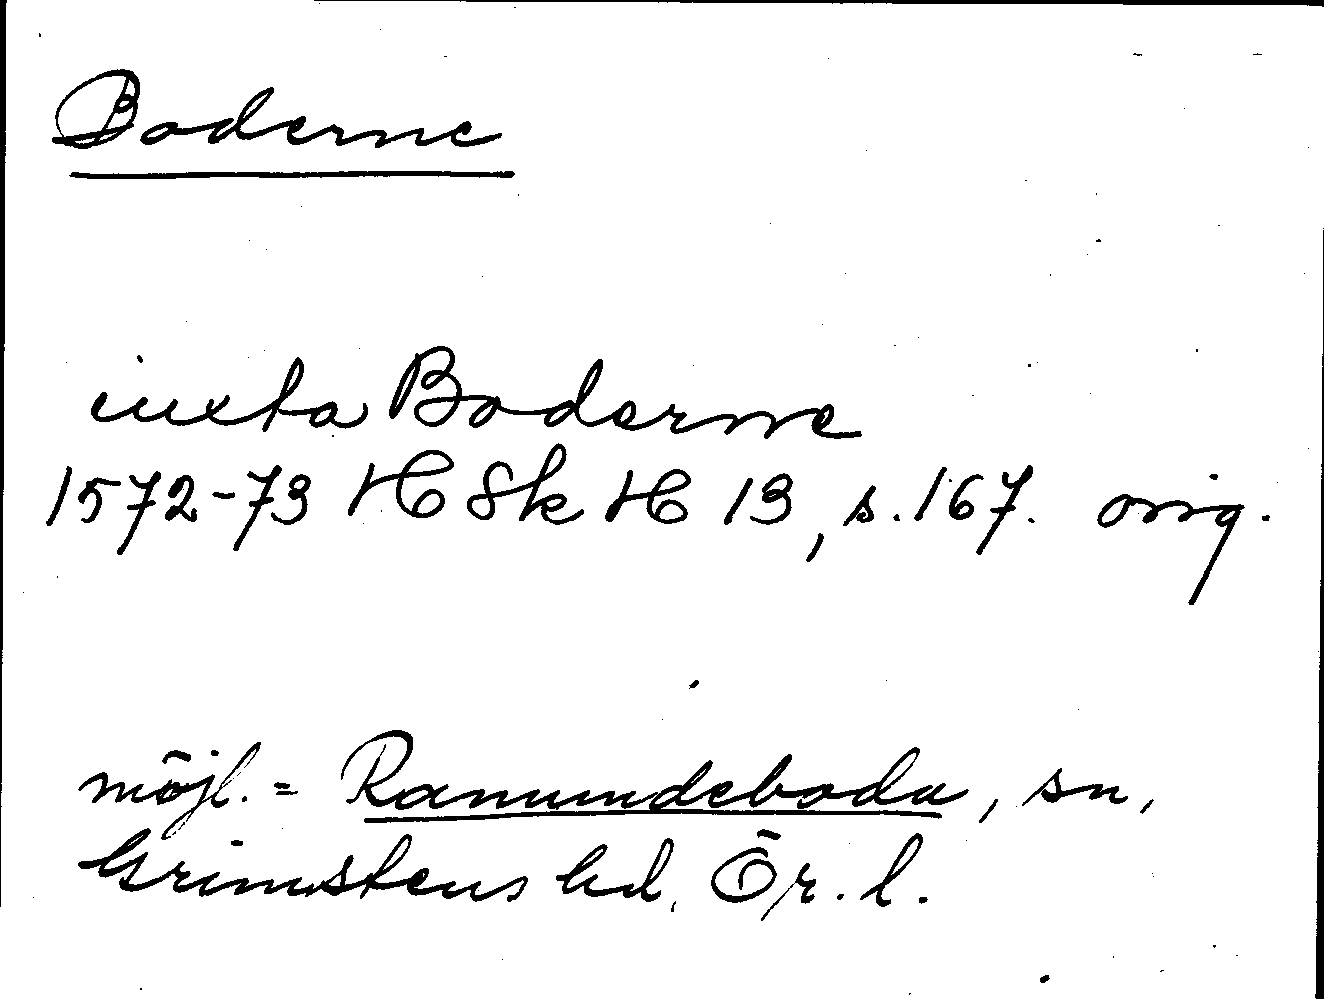 Boderne
iuxta Boderne
1572-73 H Sk H 13, s. 167. orig.
möjl. = Ramundeboda, sn,
Grimstens hd, Ör. l.